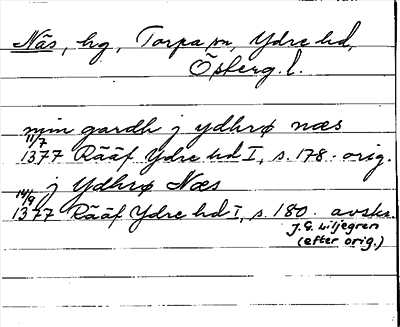 Näs, hg, Torpa sn, Ydre hd,
Österg. l.
min gardh j ydhrø næs
11/7
1377 Rääf Ydre hd I, s. 178. orig.
j Ydhrø Næs
14/9
1377 Rääf Ydre hd I, s. 180. avskr.
J.G. Liljegren
(efter orig.)